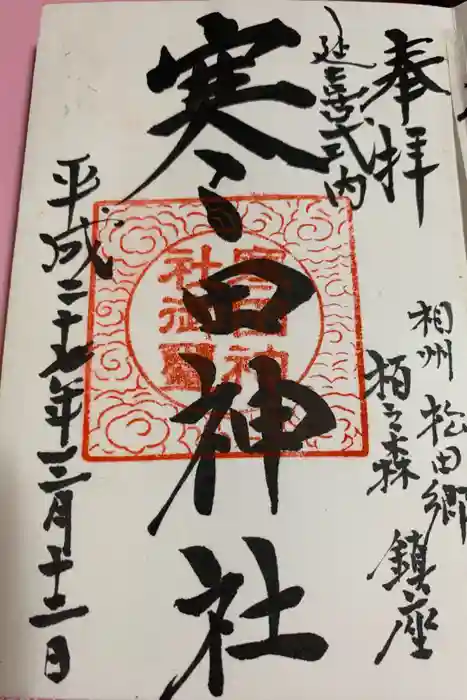 奉拝
延喜式内
相州 松田郷 鎮座
栢之森
寒田神社
寒田神
社御璽
平成二十七年三月十二日